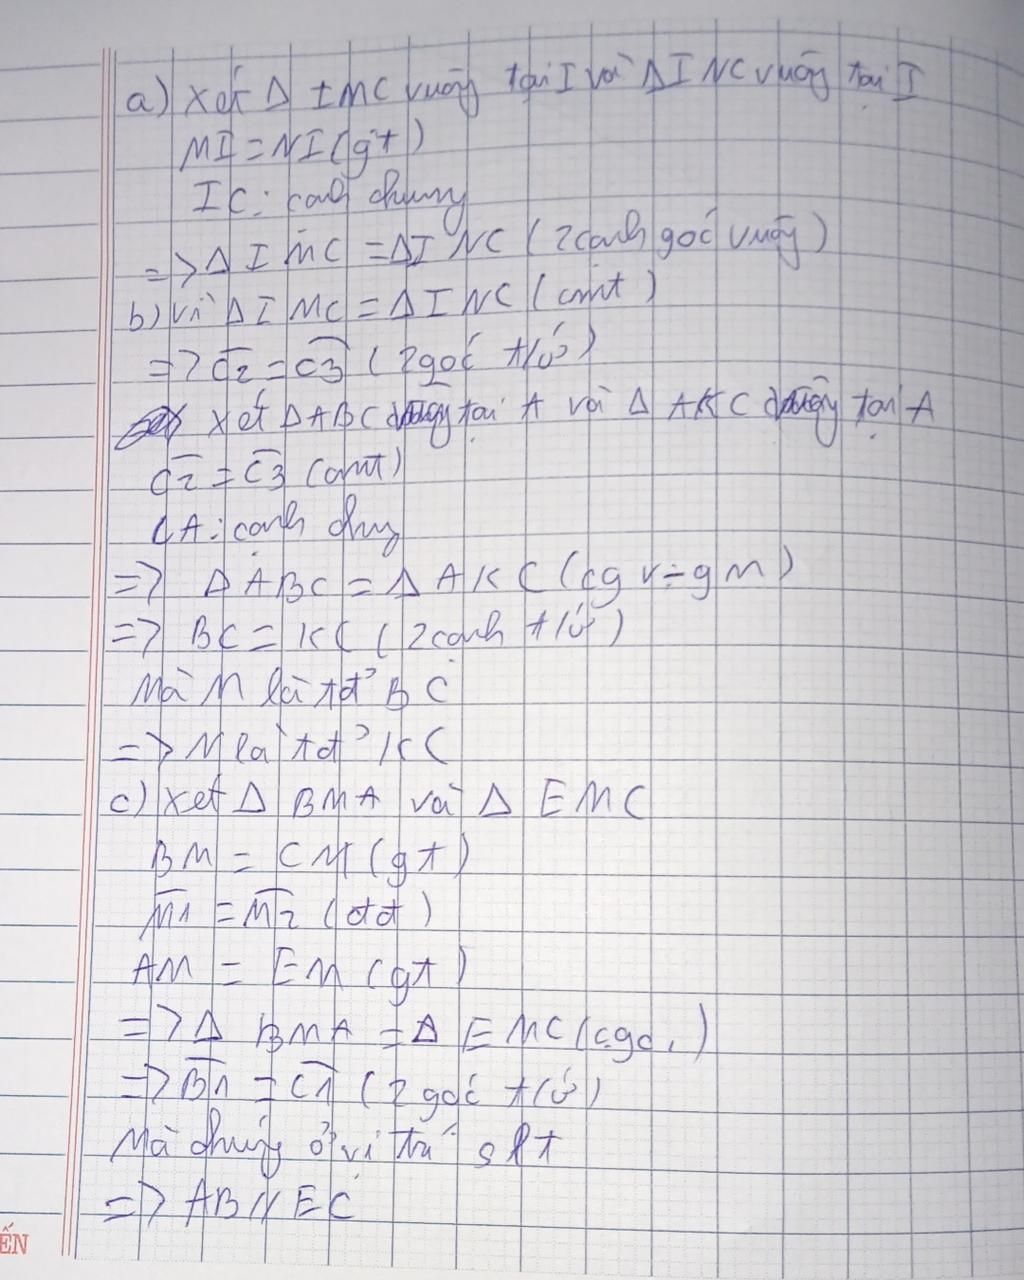 a) Xét Δ IMC vuông tại I và Δ INC vuông tại I
MI = NI (gt)
IC: cạnh chung
=> Δ IMC = Δ INC (2 cạnh góc vuông)
b) Vì Δ IMC = Δ INC (cmt)
=> C2 = C3 (2 góc t/ứ)
Xét Δ ABC vuông tại A và Δ AKC vuông tại A
C2 = C3 (cmt)
CA: cạnh chung
=> Δ ABC = Δ AKC (cgv-gn)
=> BC = KC (2 cạnh t/ứ)
Mà M là tđ' BC
=> N là tđ' KC
c) Xét Δ BMA và Δ EMC
BM = CM (gt)
M1 = M2 (đđ)
AM = EM (gt)
=> Δ BMA = Δ EMC (cgc)
=> B1 = C1 (2 góc t/ứ)
Mà chúng ở vị trí slt
=> AB // EC
ẾN